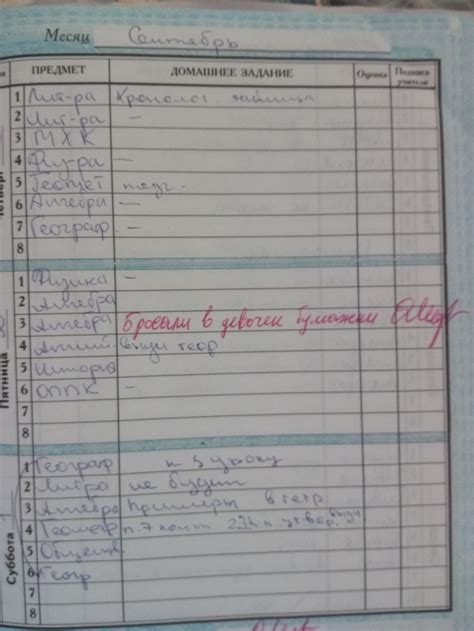 Месяц Сентябрь
ПРЕДМЕТ ДОМАШНЕЕ ЗАДАНИЕ Оценка Подпись учителя
1 Лит-ра Хронолог. таблица
2 Лит-ра –
3 МХК
4 Физ-ра –
5 Геомет
6 Алгебра –
7 Географ –
8
Четверг
1 Физика –
2 Алгебра
3 Алгебра Бросали в девочек бумажки
4 Англий выуч теор
5 История
6 ОППК –
7
8
Пятница
1 Географ к 5 уроку
2 Литра не будет
3 Алгебра Примеры в тетр
4 Геометр п. 7 конт выуч
5 Обществ
6 Геогр
7
8
Суббота